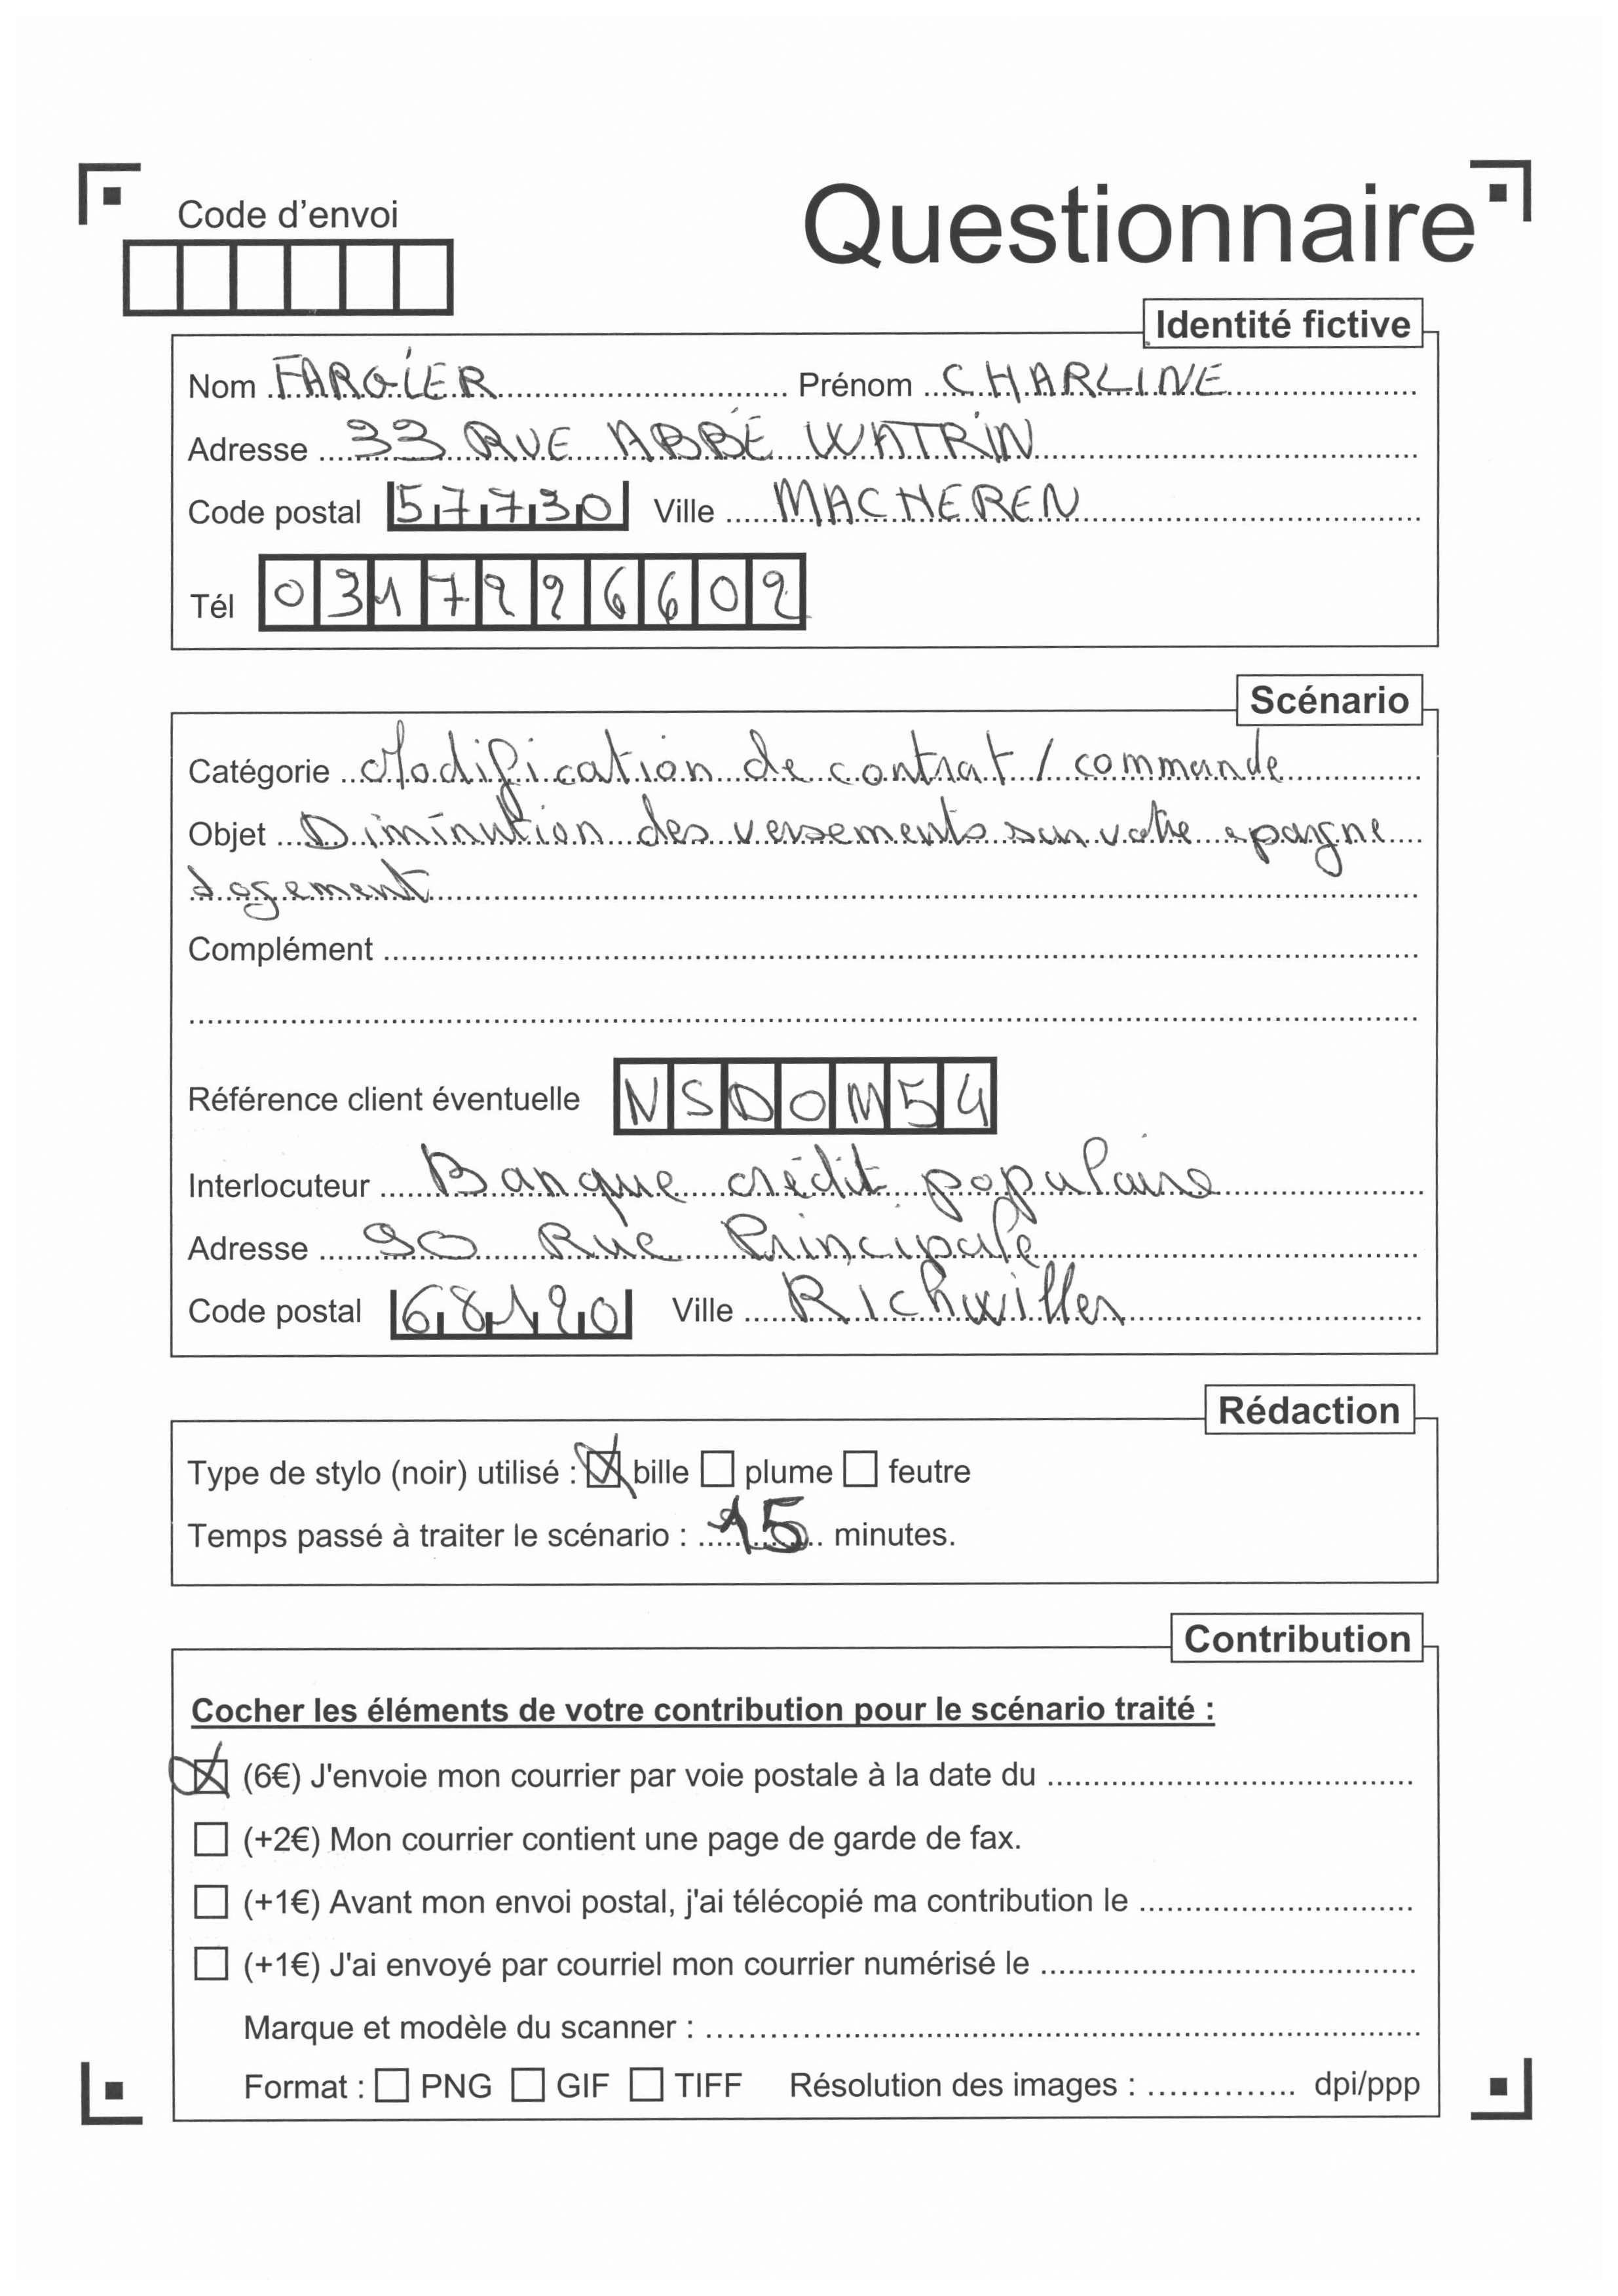 Code d'envoi
Questionnaire
Identité fictive
Nom FARGIER Prénom CHARLINE
Adresse 33 RUE ABBÉ WATRIN
Code postal 57730 Ville MACHEREN
Tél 0317996602
Scénario
Catégorie Modification de contrat / commande
Objet Diminution des versements sur votre epargne
Logement
Complément
Référence client éventuelle NSDOM54
Interlocuteur Banque crédit populaire
Adresse 90 Rue Principale
Code postal 68120 Ville Richwiller
Rédaction
Type de stylo (noir) utilisé : bille plume feutre
Temps passé à traiter le scénario : 15 minutes.
Contribution
Cocher les éléments de votre contribution pour le scénario traité :
(6€) J'envoie mon courrier par voie postale à la date du
(+2€) Mon courrier contient une page de garde de fax.
(+1€) Avant mon envoi postal, j'ai télécopié ma contribution le
(+1€) J'ai envoyé par courriel mon courrier numérisé le
Marque et modèle du scanner :
Format : PNG GIF TIFF Résolution des images : dpi/ppp